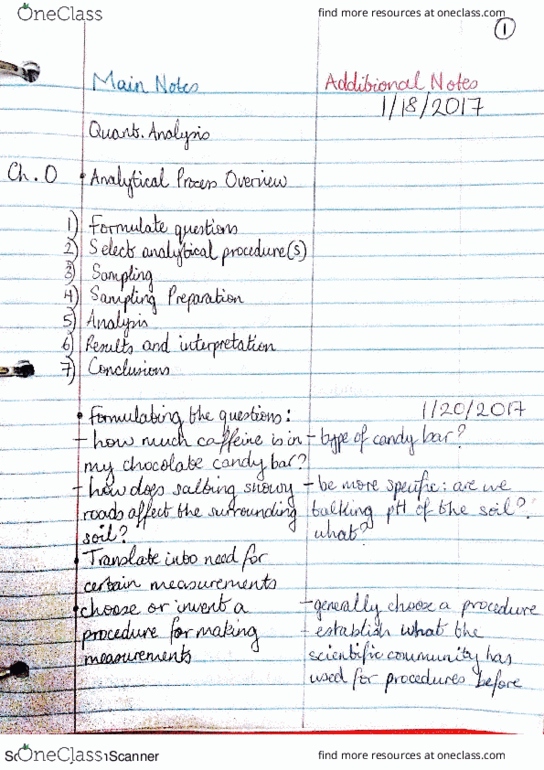 OneClass
find more resources at oneclass.com
1
Main Notes
Additional Notes
1/18/2017
Quant. Analysis
Ch. 0 • Analytical Process Overview
1) Formulate questions
2) Select analytical procedure(s)
3) Sampling
4) Sampling Preparation
5) Analysis
6) Results and interpretation
7) Conclusions
1/20/2017
• Formulating the questions:
- how much caffeine is in
my chocolate candy bar?
- type of candy bar?
- how does salting snowy
roads affect the surrounding
soil?
- be more specific: are we
talking pH of the soil?
what?
• Translate into need for
certain measurements
• choose or invent a
procedure for making
measurements
- generally choose a procedure
- establish what the
scientific community has
used for procedures before
OneClass
Scanner
find more resources at oneclass.com